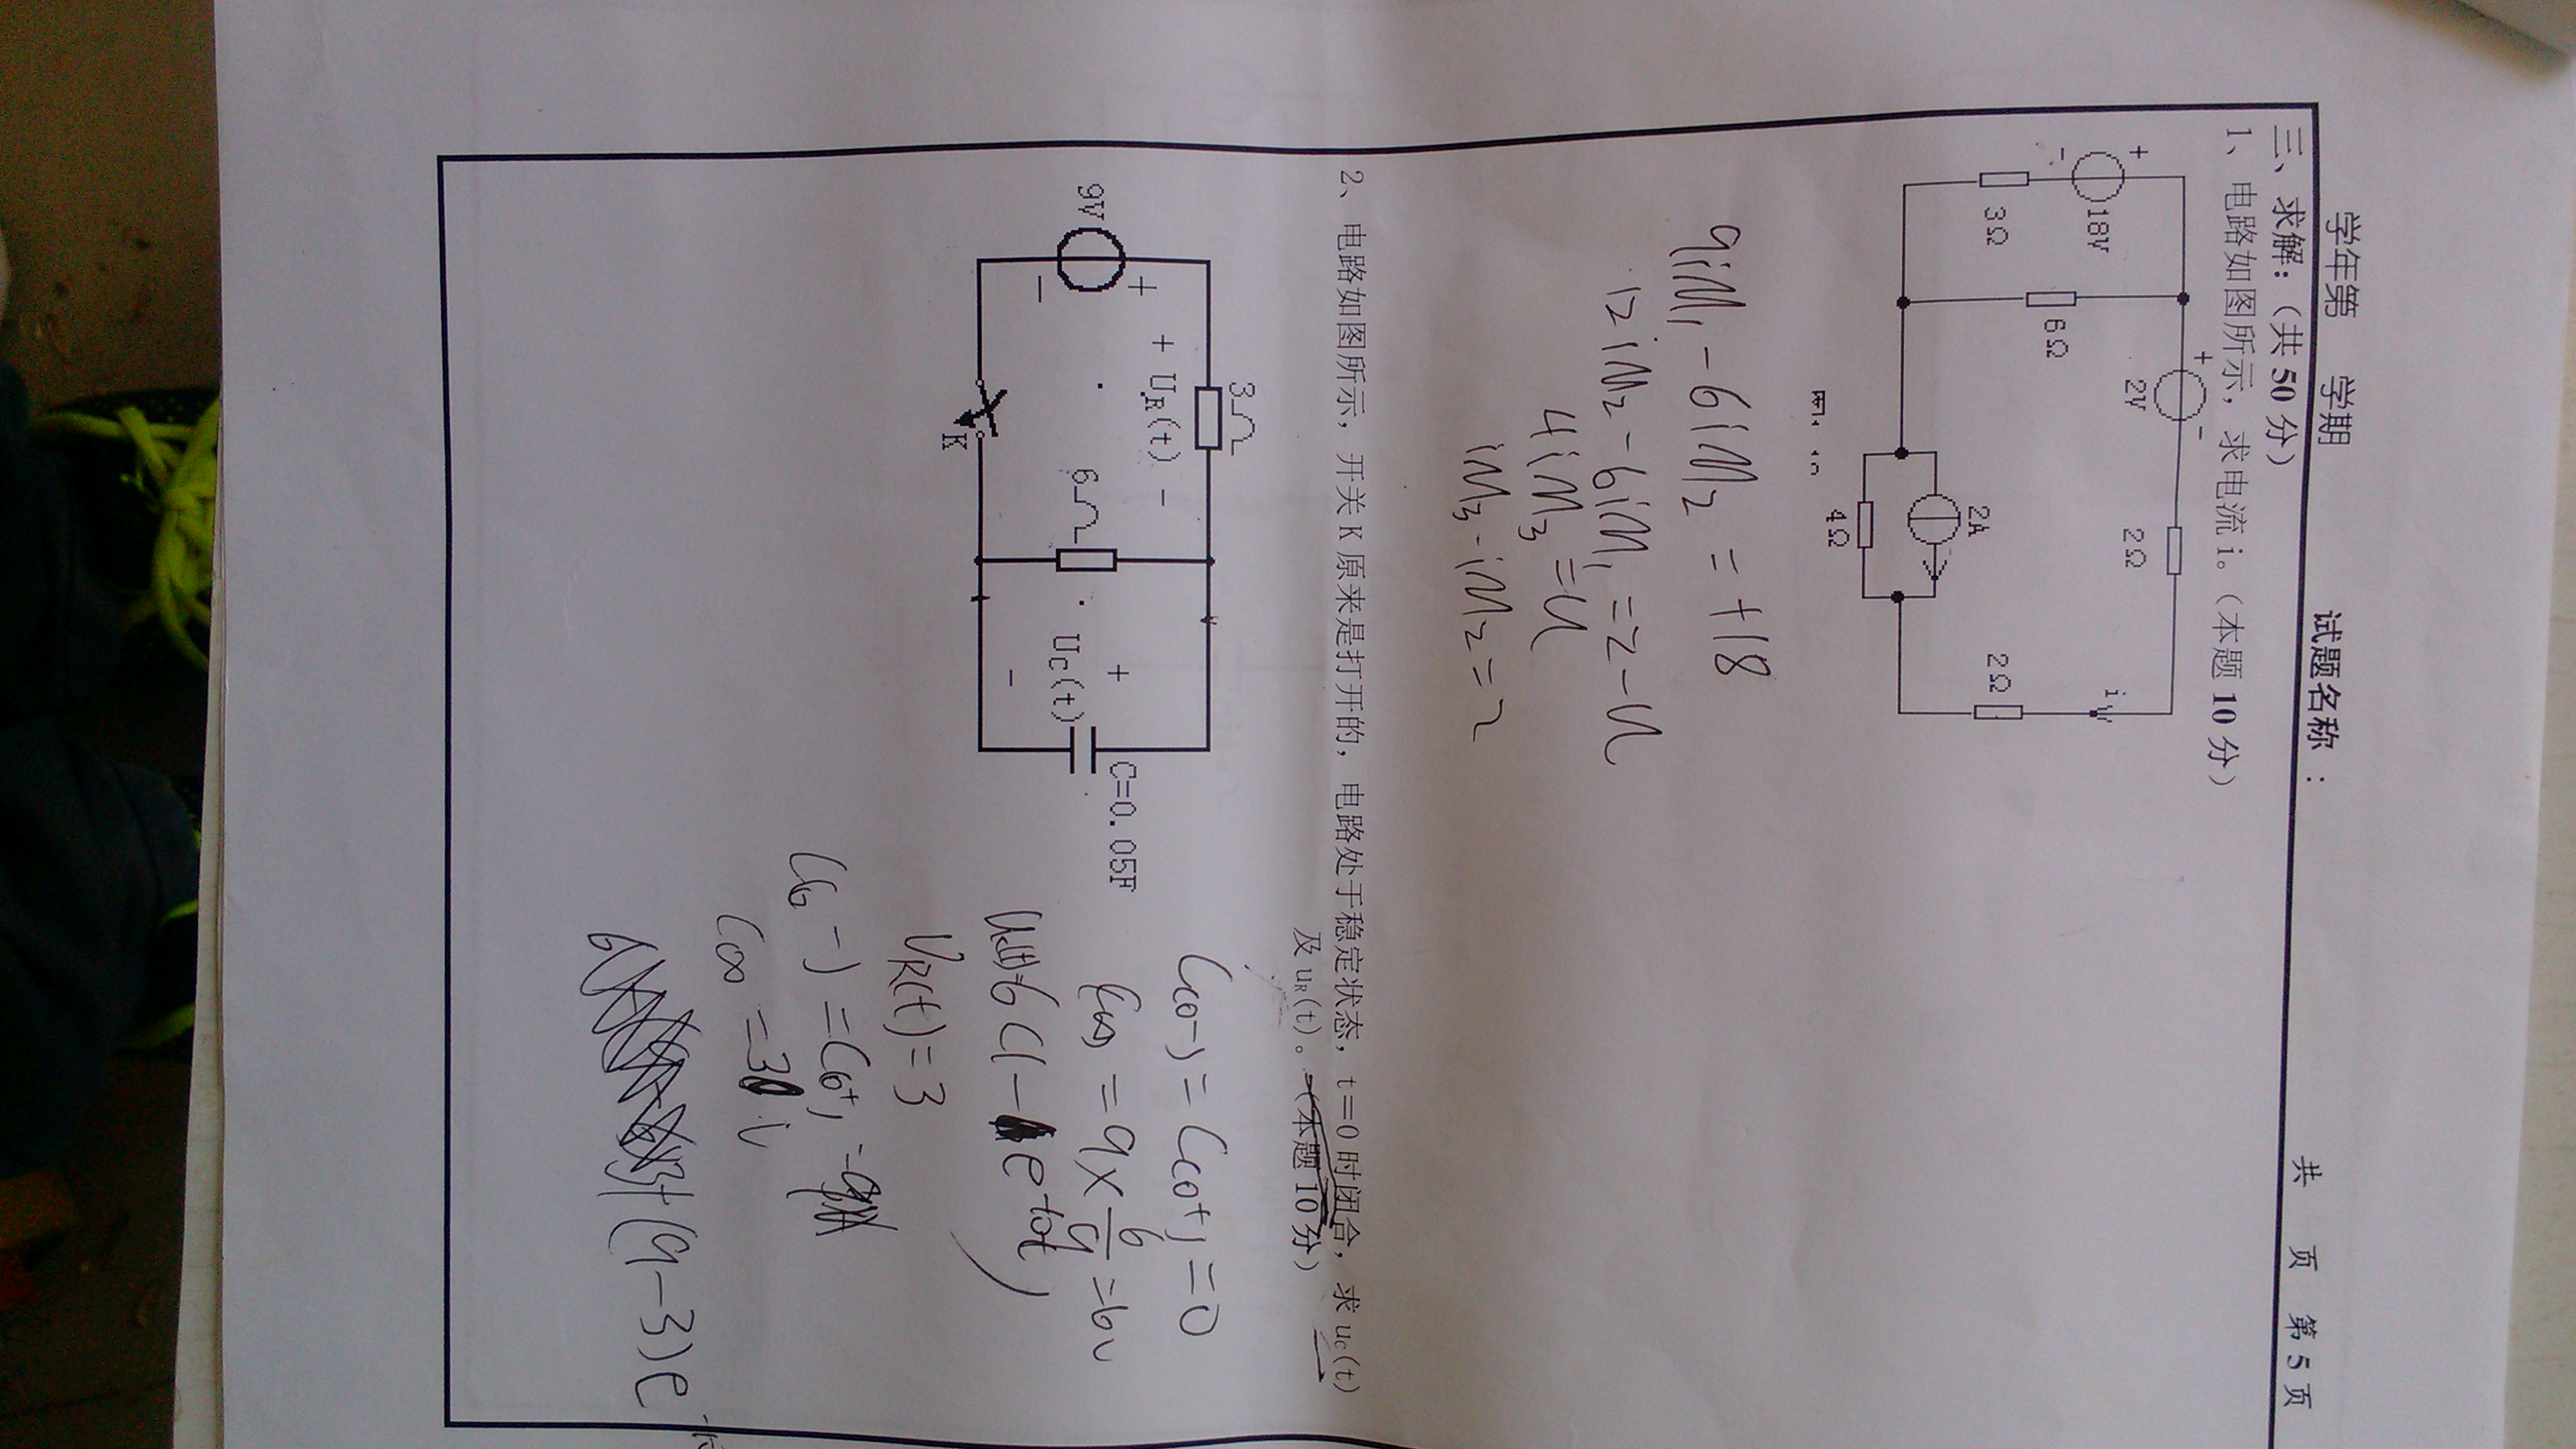 学年第 学期 试题名称：
共 页 第 5 页
三、求解：（共 50 分）
1、电路如图所示，求电流 i。（本题 10 分）
+ -
2V
2Ω
+
18V
-
i
6Ω
3Ω
2Ω
2A
4Ω
9iM₁-6iM₂=+18
12iM₂-6iM₁=2-U
4iM₃=U
iM₃-iM₂=2
2、电路如图所示，开关 K 原来是打开的，电路处于稳定状态，t＝0 时闭合，求 uC(t)
及 uR(t)。（本题 10 分）
3
+ UR(t) -
+
9V
-
6
+
UC(t)
-
C=0.05F
K
C(0-)=C(0+)=0
=9×6/9=6V
6(1-e
UR(t)=3
3+(9-3)e